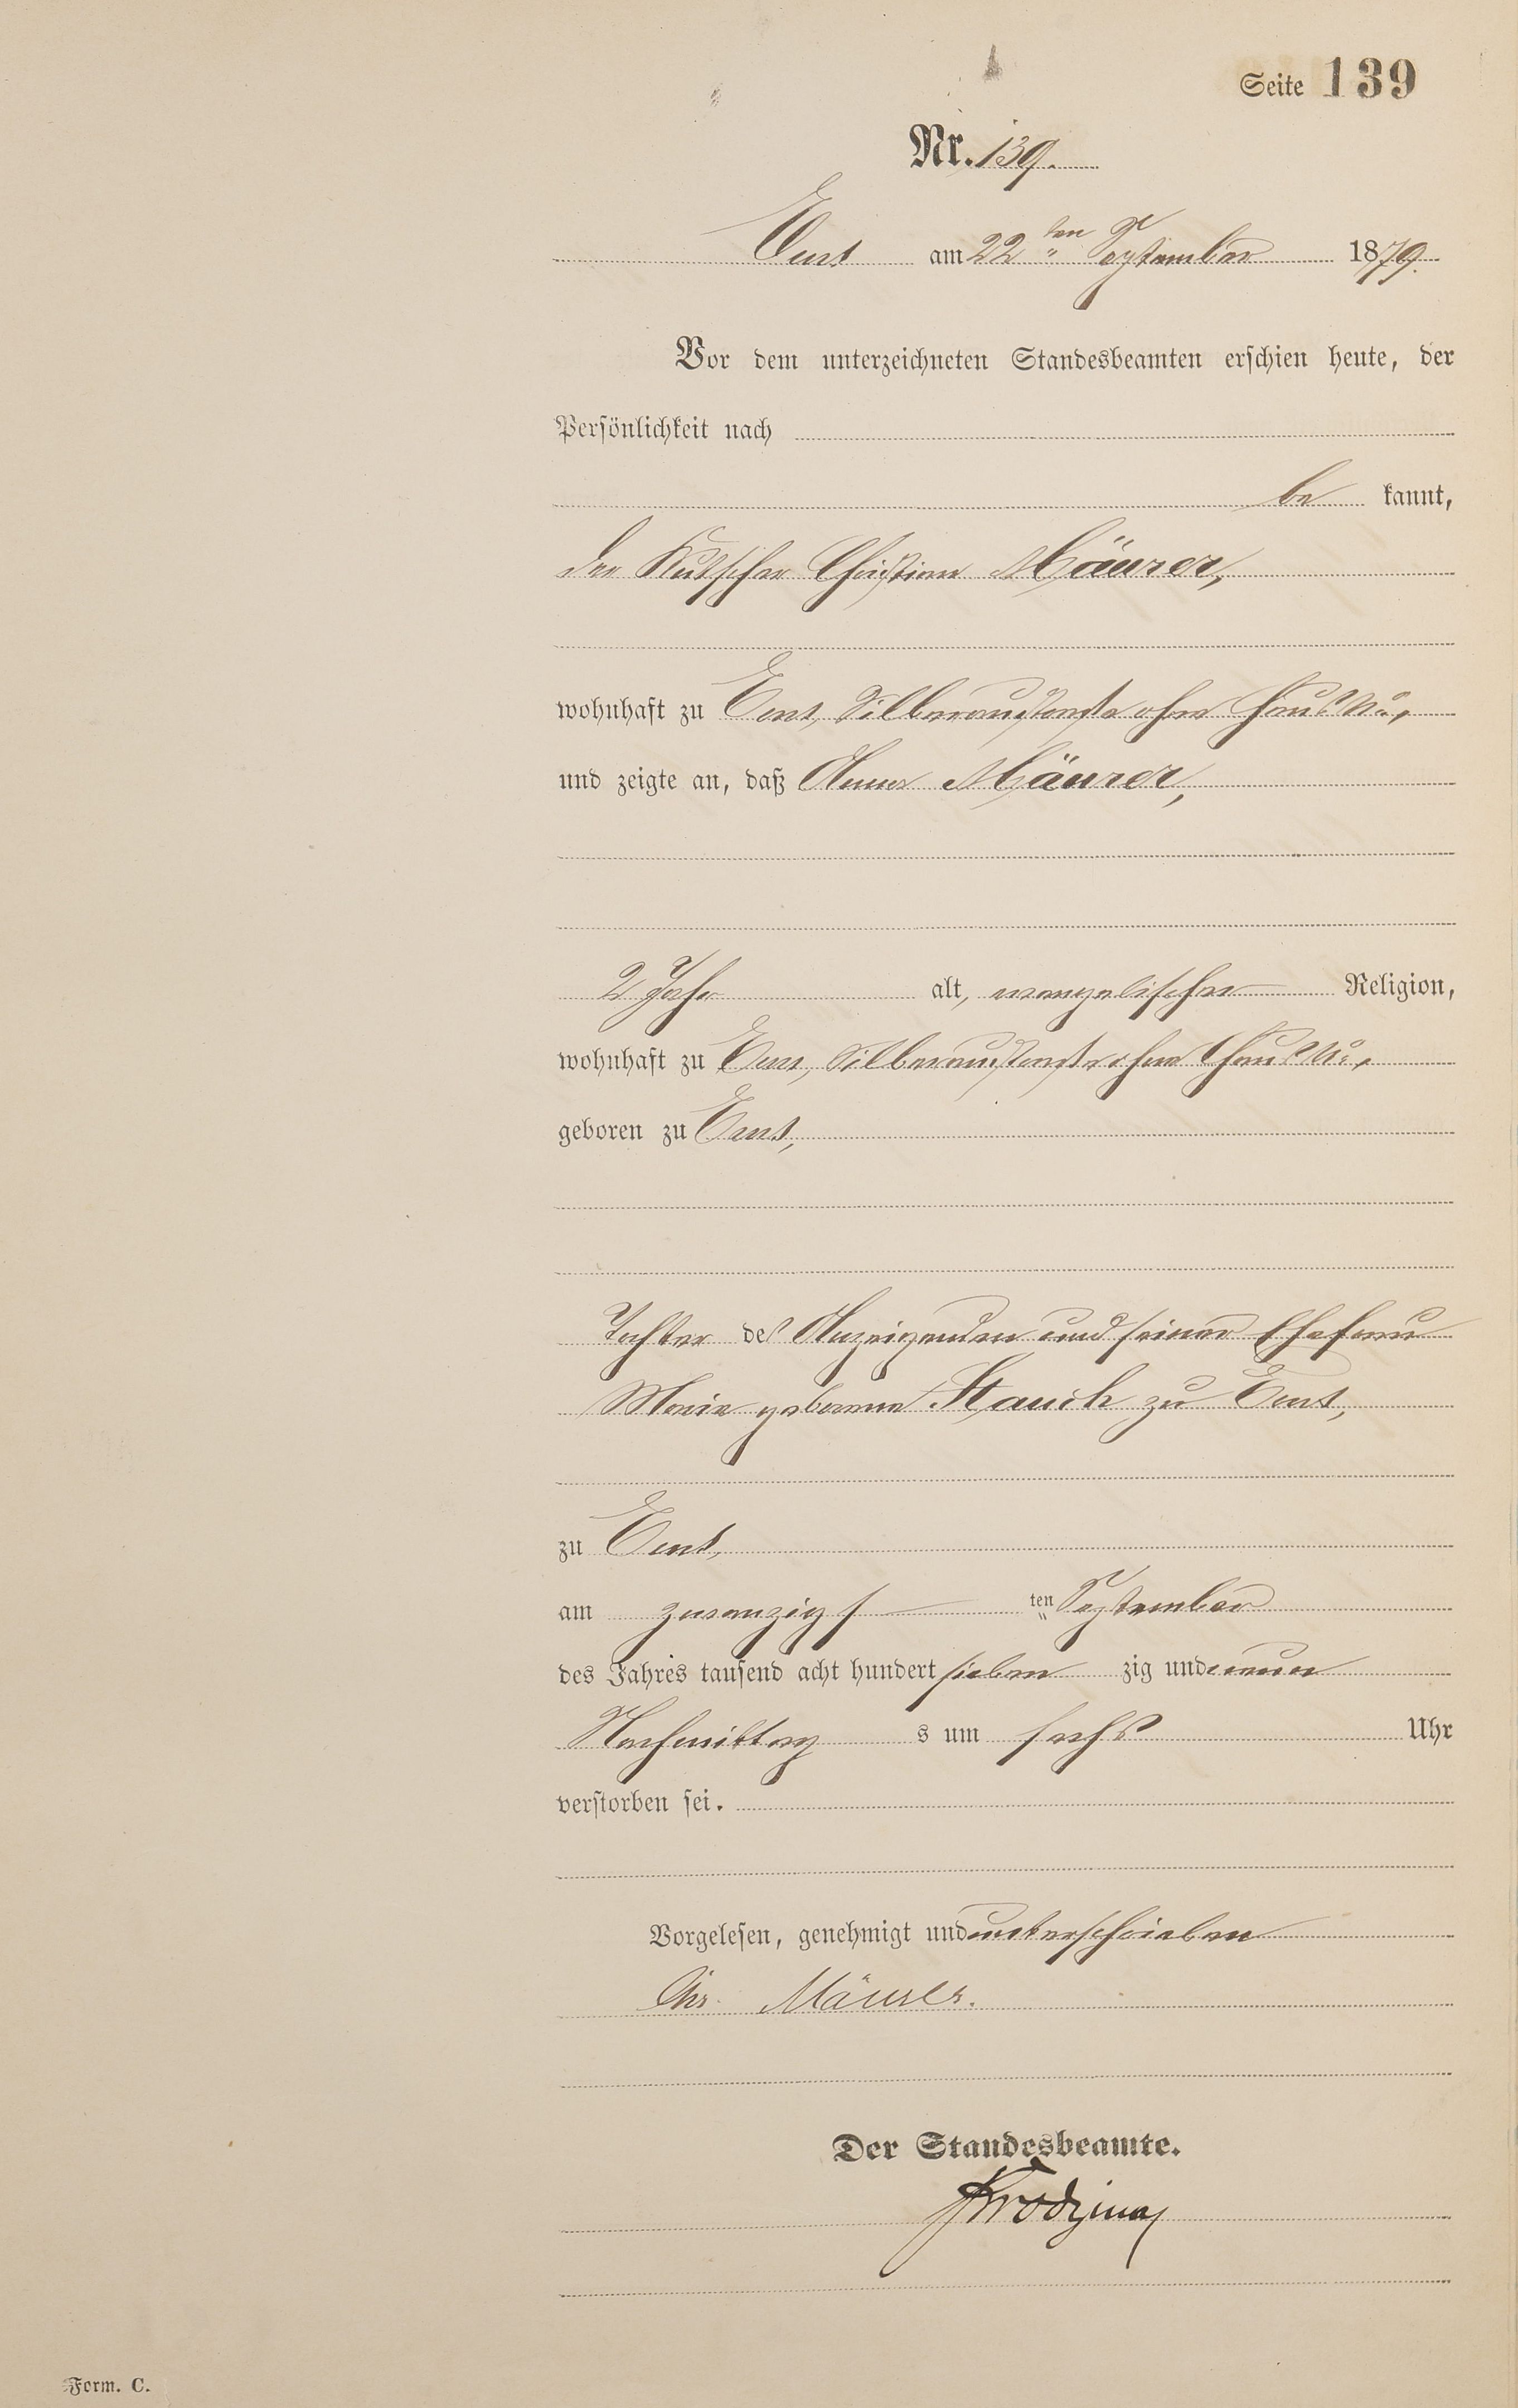 Seite 139
Nr. 139.
Ems am 22ten September 1879.
Vor dem unterzeichneten Standesbeamten erschien heute, der
Persönlichkeit nach
be kannt,
der Kutscher Christian Mäurer,
wohnhaft zu Ems, Silberaustraße ohne Haus No,
und zeigte an, daß Anna Mäurer,
2 Jahr alt, evangelischer Religion,
wohnhaft zu Ems, Silberaustraße ohne Haus No,
geboren zu Ems,
Tochter des Anzeigenden und seiner Ehefrau
Marie geborene Stauch zu Ems,
zu Ems,
am zwanzigsten September
des Jahres tausend acht hundert sieben zig und neun
Nachmittag s um sechs Uhr
verstorben sei.
Vorgelesen, genehmigt und unterschrieben
Chr. Mäurer.
Der Standesbeamte.
Form. C.